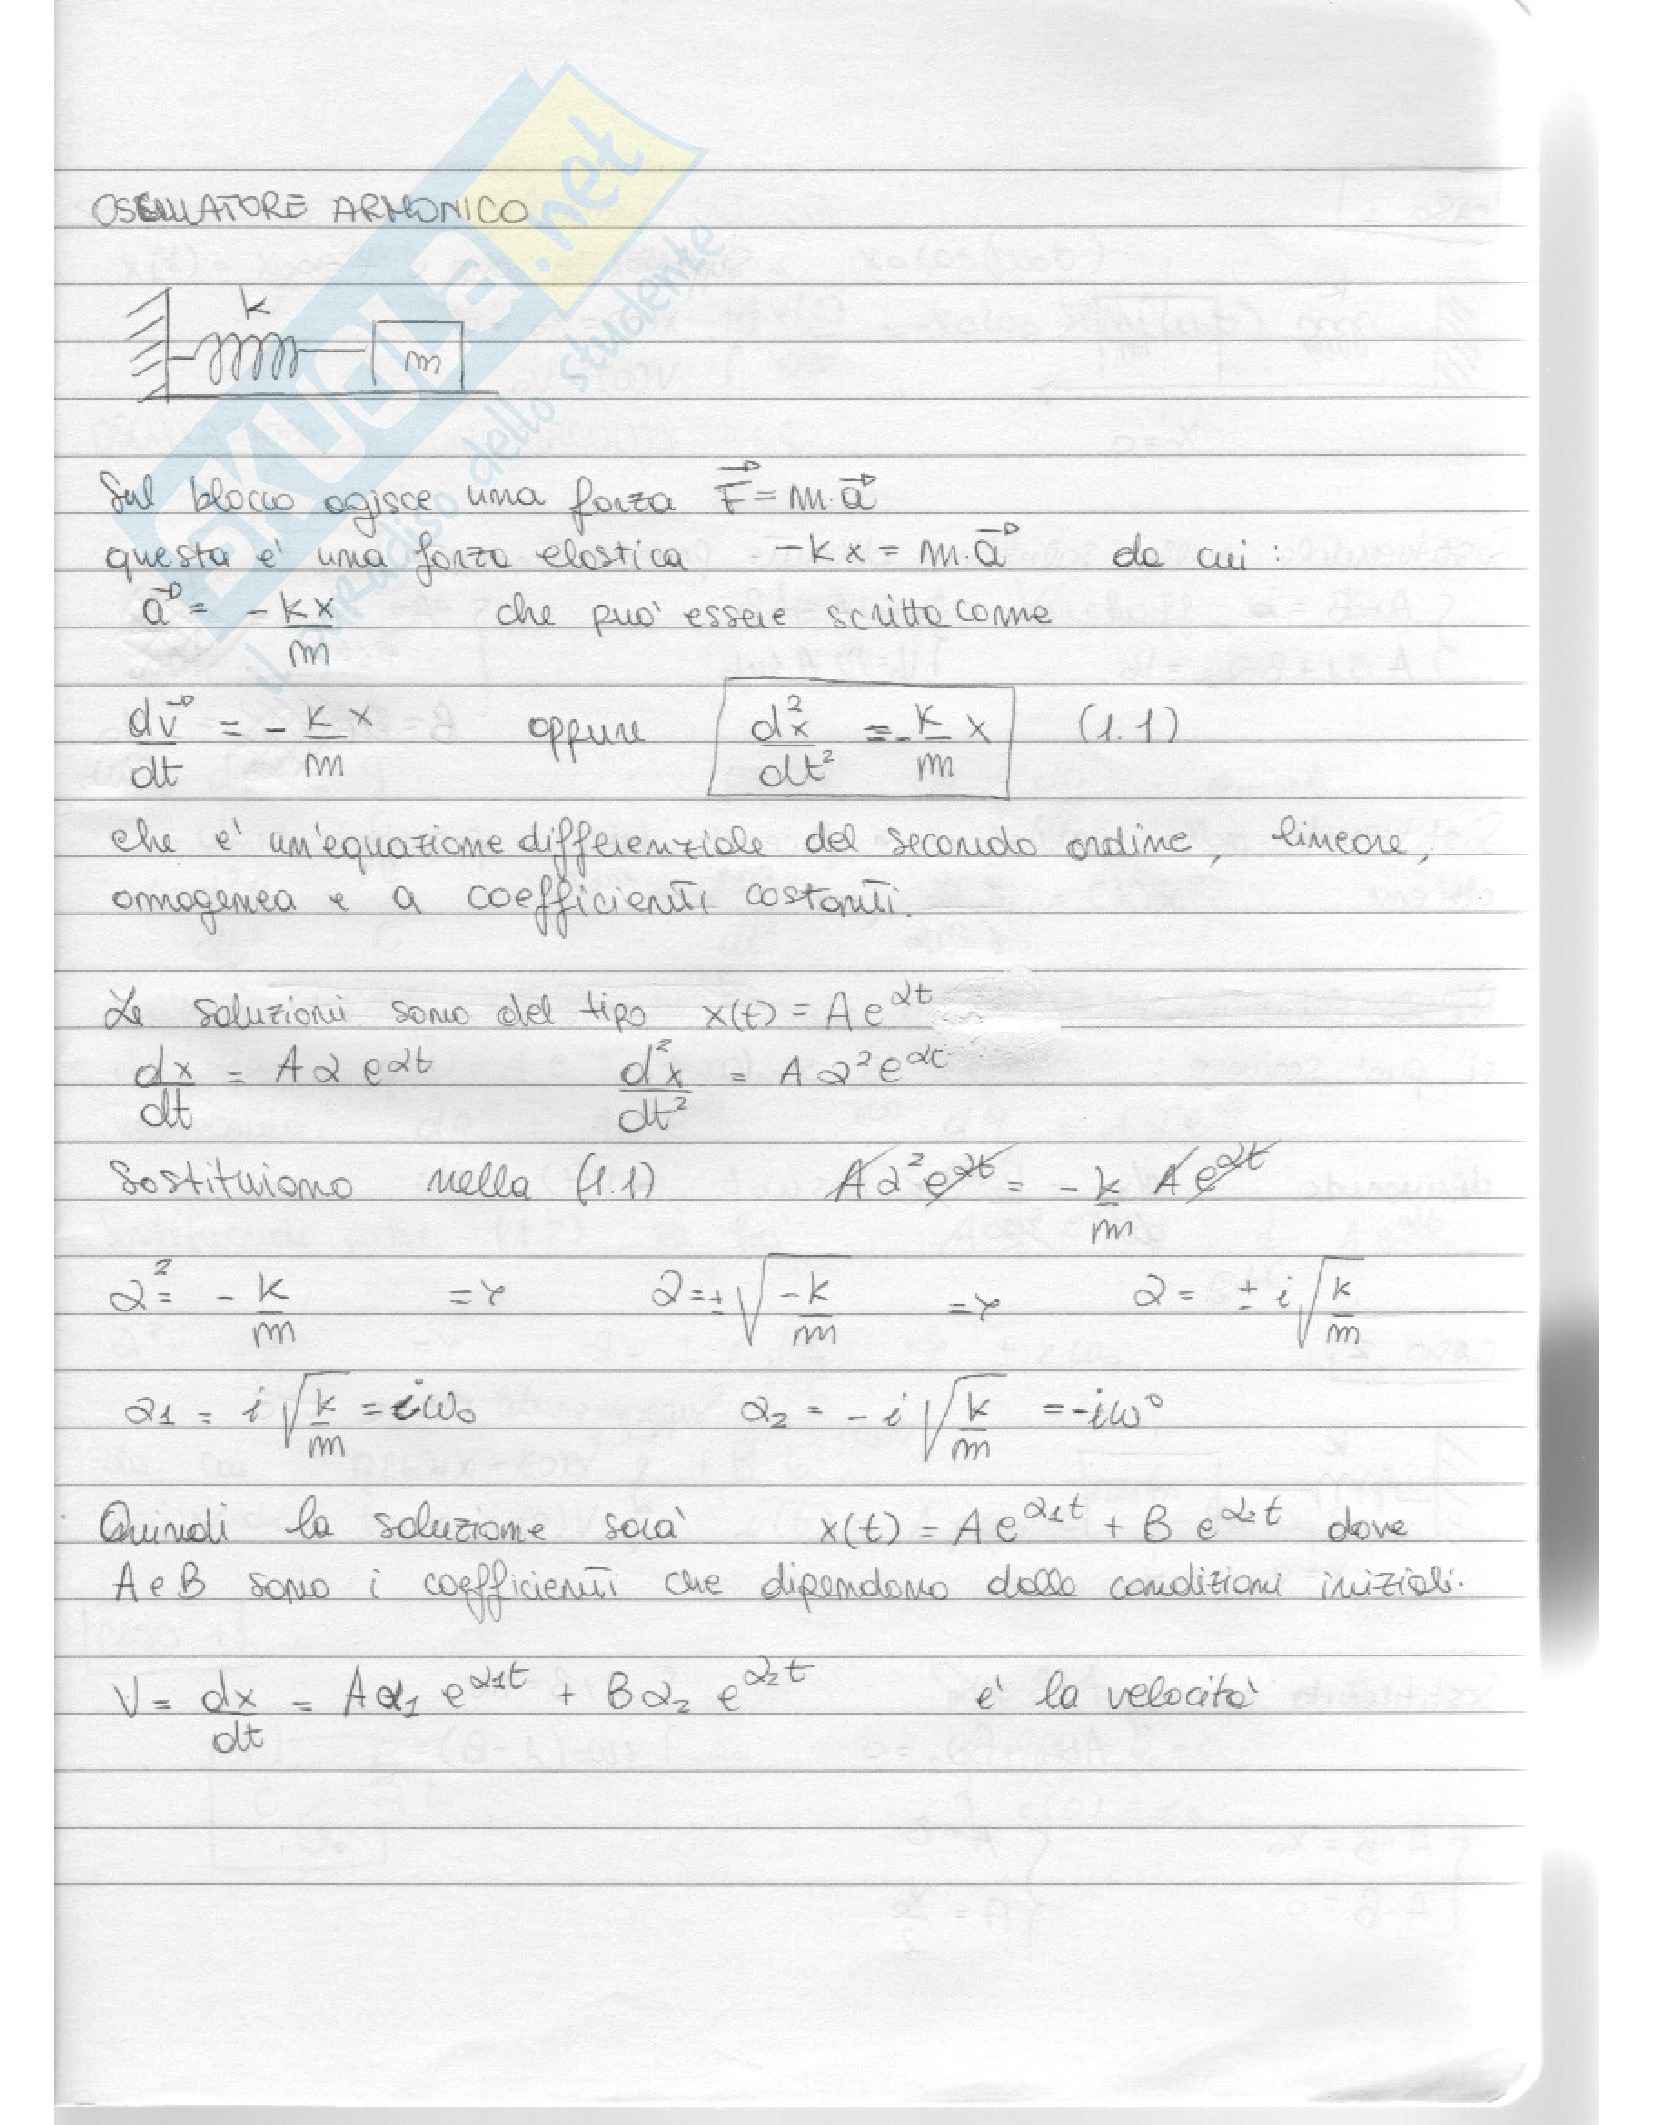 OSCILLATORE ARMONICO
k
m
Sul blocco agisce una forza F⃗ = m·a⃗
questa è una forza elastica -kx = m·a⃗ da cui :
a⃗ = -kx/m che può essere scritta come
dv⃗/dt = - k/m x oppure d²x/dt² = - k/m x (1.1)
che è un'equazione differenziale del secondo ordine, lineare,
omogenea e a coefficienti costanti.
Le soluzioni sono del tipo x(t) = A e^αt
dx/dt = A α e^αt d²x/dt² = A α² e^αt
Sostituiamo nella (1.1) A α² e^αt = - k/m A e^αt
α² = - k/m => α = ± √(-k/m) => α = ± i √(k/m)
α1 = i √(k/m) = iω₀ α2 = - i √(k/m) = -iω⁰
Quindi la soluzione sarà x(t) = A e^α1t + B e^α2t dove
A e B sono i coefficienti che dipendono dalle condizioni iniziali.
V = dx/dt = A α1 e^α1t + B α2 e^α2t è la velocità
SKUOLA.net
il paradiso dello studente